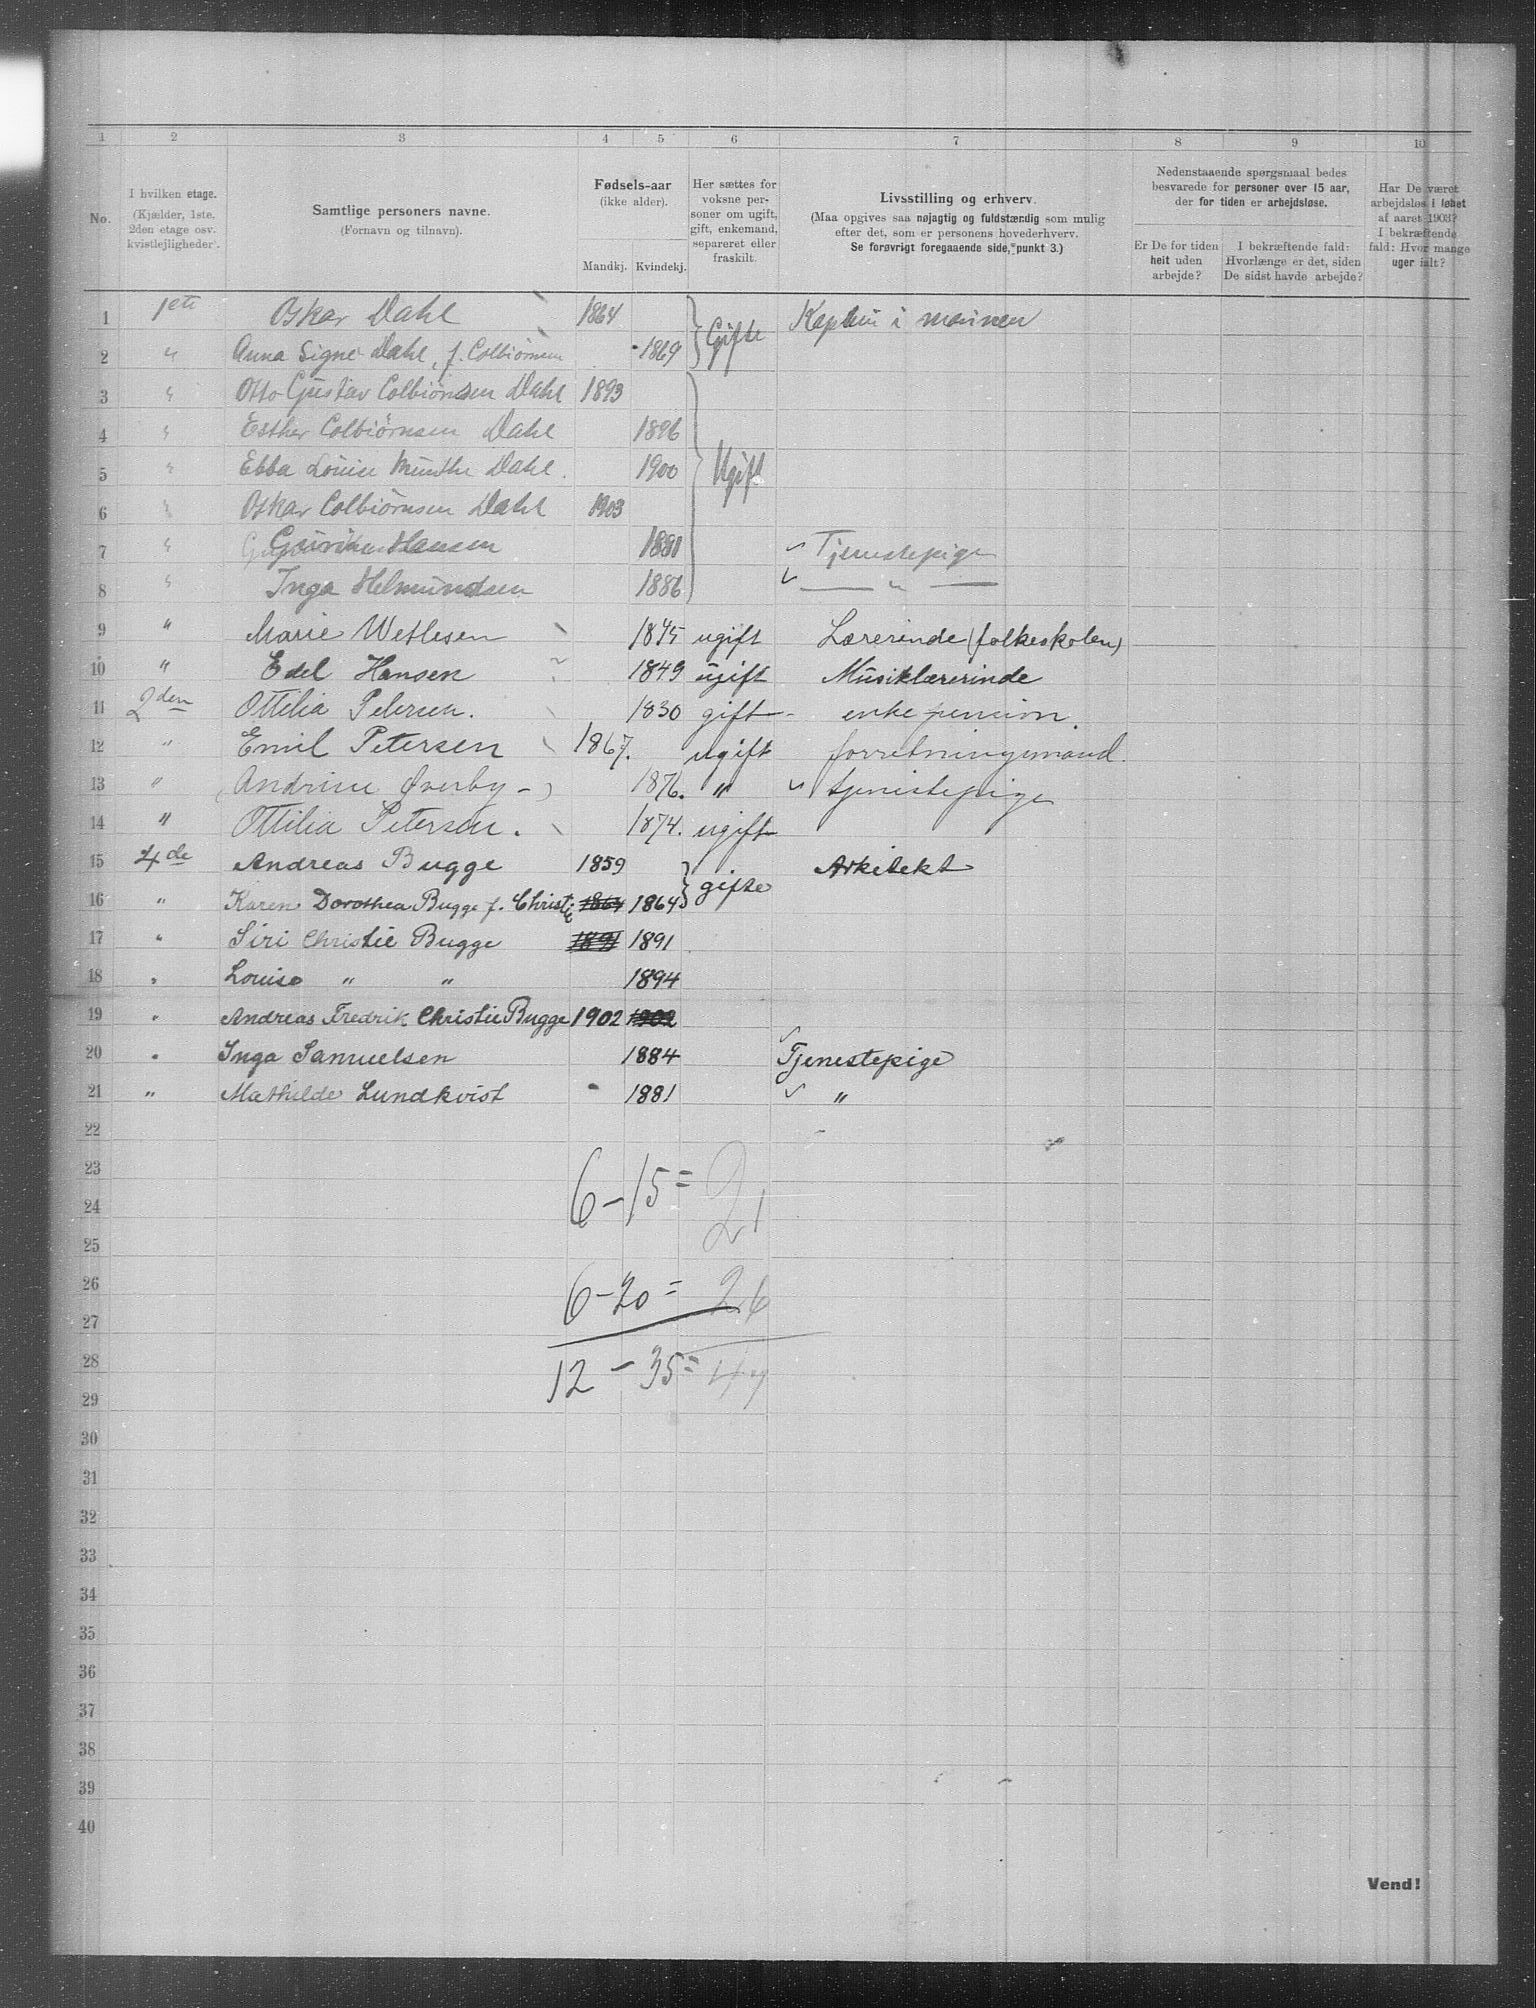 1 2 3 4 5 6 7 8 9 10
No.
I hvilken etage.
(Kjælder, 1ste.
2den etage osv.
kvistlejligheder).
Samtlige personers navne.
(Fornavn og tilnavn).
Fødsels-aar
(ikke alder).
Mandkj. Kvindekj.
Her sættes for
voksne per-
soner om ugift,
gift, enkemand,
separeret eller
fraskilt.
Livsstilling og erhverv.
(Maa opgives saa nøjagtig og fuldstændig som mulig
efter det, som er personens hovederhverv.
Se forøvrigt foregaaende side, punkt 3.)
Nedenstaaende spørgsmaal bedes
besvarede for personer over 15 aar,
der for tiden er arbejdsløse.
Er De for tiden
helt uden
arbejde?
I bekræftende fald:
Hvorlænge er det, siden
De sidst havde arbejde?
Har De været
arbejdsløs i løbet
af aaret 1903?
I bekræftende
fald: Hvor mange
uger ialt?
1 1ste Oskar Dahl 1864 Gifte Kaptein i marinen
2 " Anna Signe Dahl, f. Colbiørnsen 1869
3 " Otto Gustav Colbiørnsen Dahl 1893
4 " Esther Colbiørnsen Dahl 1896
5 " Ebba Louise Munthe Dahl. 1900 Ugift
6 " Oskar Colbiørnsen Dahl 1903
7 " Hansen 1881 Tjenestepige
8 " Inga Helmundsen 1886 — " —
9 " Marie Wetlesen 1845 ugift Lærerinde (folkeskolen)
10 " Edel Hansen 1849 ugift Musiklærerinde
11 2den Ottilia Petersen. 1830 gift enkepension.
12 " Emil Petersen 1867. ugift forretningsmand.
13 " (Andrine Øverby -) 1876. " tjenestepige
14 " Ottilia Petersen. 1874. ugift
15 4de Andreas Bugge 1859 gifte Arkitekt
16 " Karen Dorothea Bugge f. Christie 1864 1864
17 " Siri Christie Bugge 1891 1891
18 " Louise " " 1894
19 " Andreas Fredrik Christie Bugge 1902 1902
20 " Inga Samuelsen 1884 Tjenestepige
21 " Mathilde Lundkvist 1881 "
22
23
6 - 15 = 21
24
25
26
6 - 20 = 26
27
28
12 - 35 = 47
29
30
31
32
33
34
35
36
37
38
39
40
Vend!